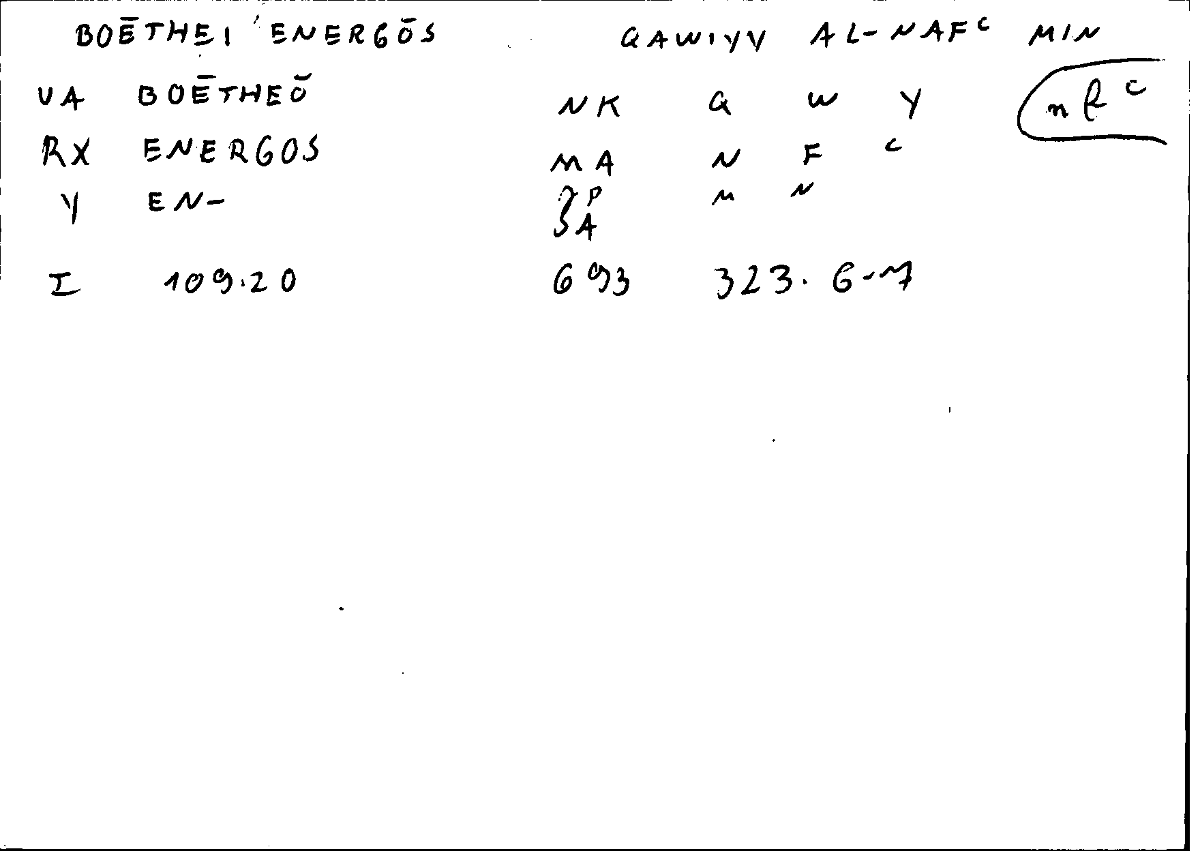 BOĒTHEI ENERGŌS QAWIYY AL-NAFᶜ MIN
VA BOĒTHEŌ NK Q W Y nfᶜ
RX ENERGOS MA N F ᶜ
Y EN- M N
SA
I 109.20 693 323. 6-7